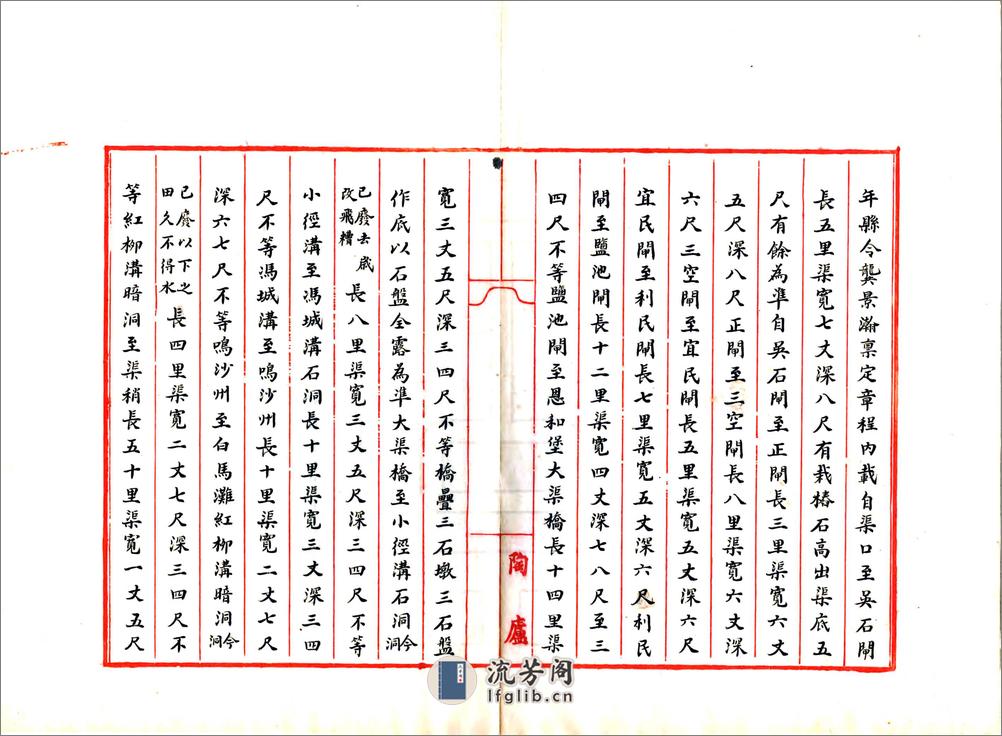 年縣令龔景瀚稟定章程內載自渠口至吳石閘
長五里渠寬七丈深八尺有栽樁石高出渠底五
尺有餘為準自吳石閘至正閘長三里渠寬六丈
五尺深八尺正閘至三空閘長八里渠寬六丈深
六尺三空閘至宜民閘長五里渠寬五丈深六尺
宜民閘至利民閘長七里渠寬五丈深六尺利民
閘至鹽池閘長十二里渠寬四丈深七八尺至三
四尺不等鹽池閘至恩和堡大渠橋長十四里渠
陶廬
寬三丈五尺深三四尺不等橋疊三石墩三石盤
作底以石盤全露為準大渠橋至小徑溝石洞今洞
已廢去歲改飛槽長八里渠寬三丈五尺深三四尺不等
小徑溝至馮城溝石洞長十里渠寬三丈深三四
尺不等馮城溝至鳴沙州長十里渠寬二丈七尺
深六七尺不等鳴沙州至白馬灘紅柳溝暗洞今洞
已廢以下之田久不得水長四里渠寬二丈七尺深三四尺不
等紅柳溝暗洞至渠稍長五十里渠寬一丈五尺
流芳阁
lfglib.cn